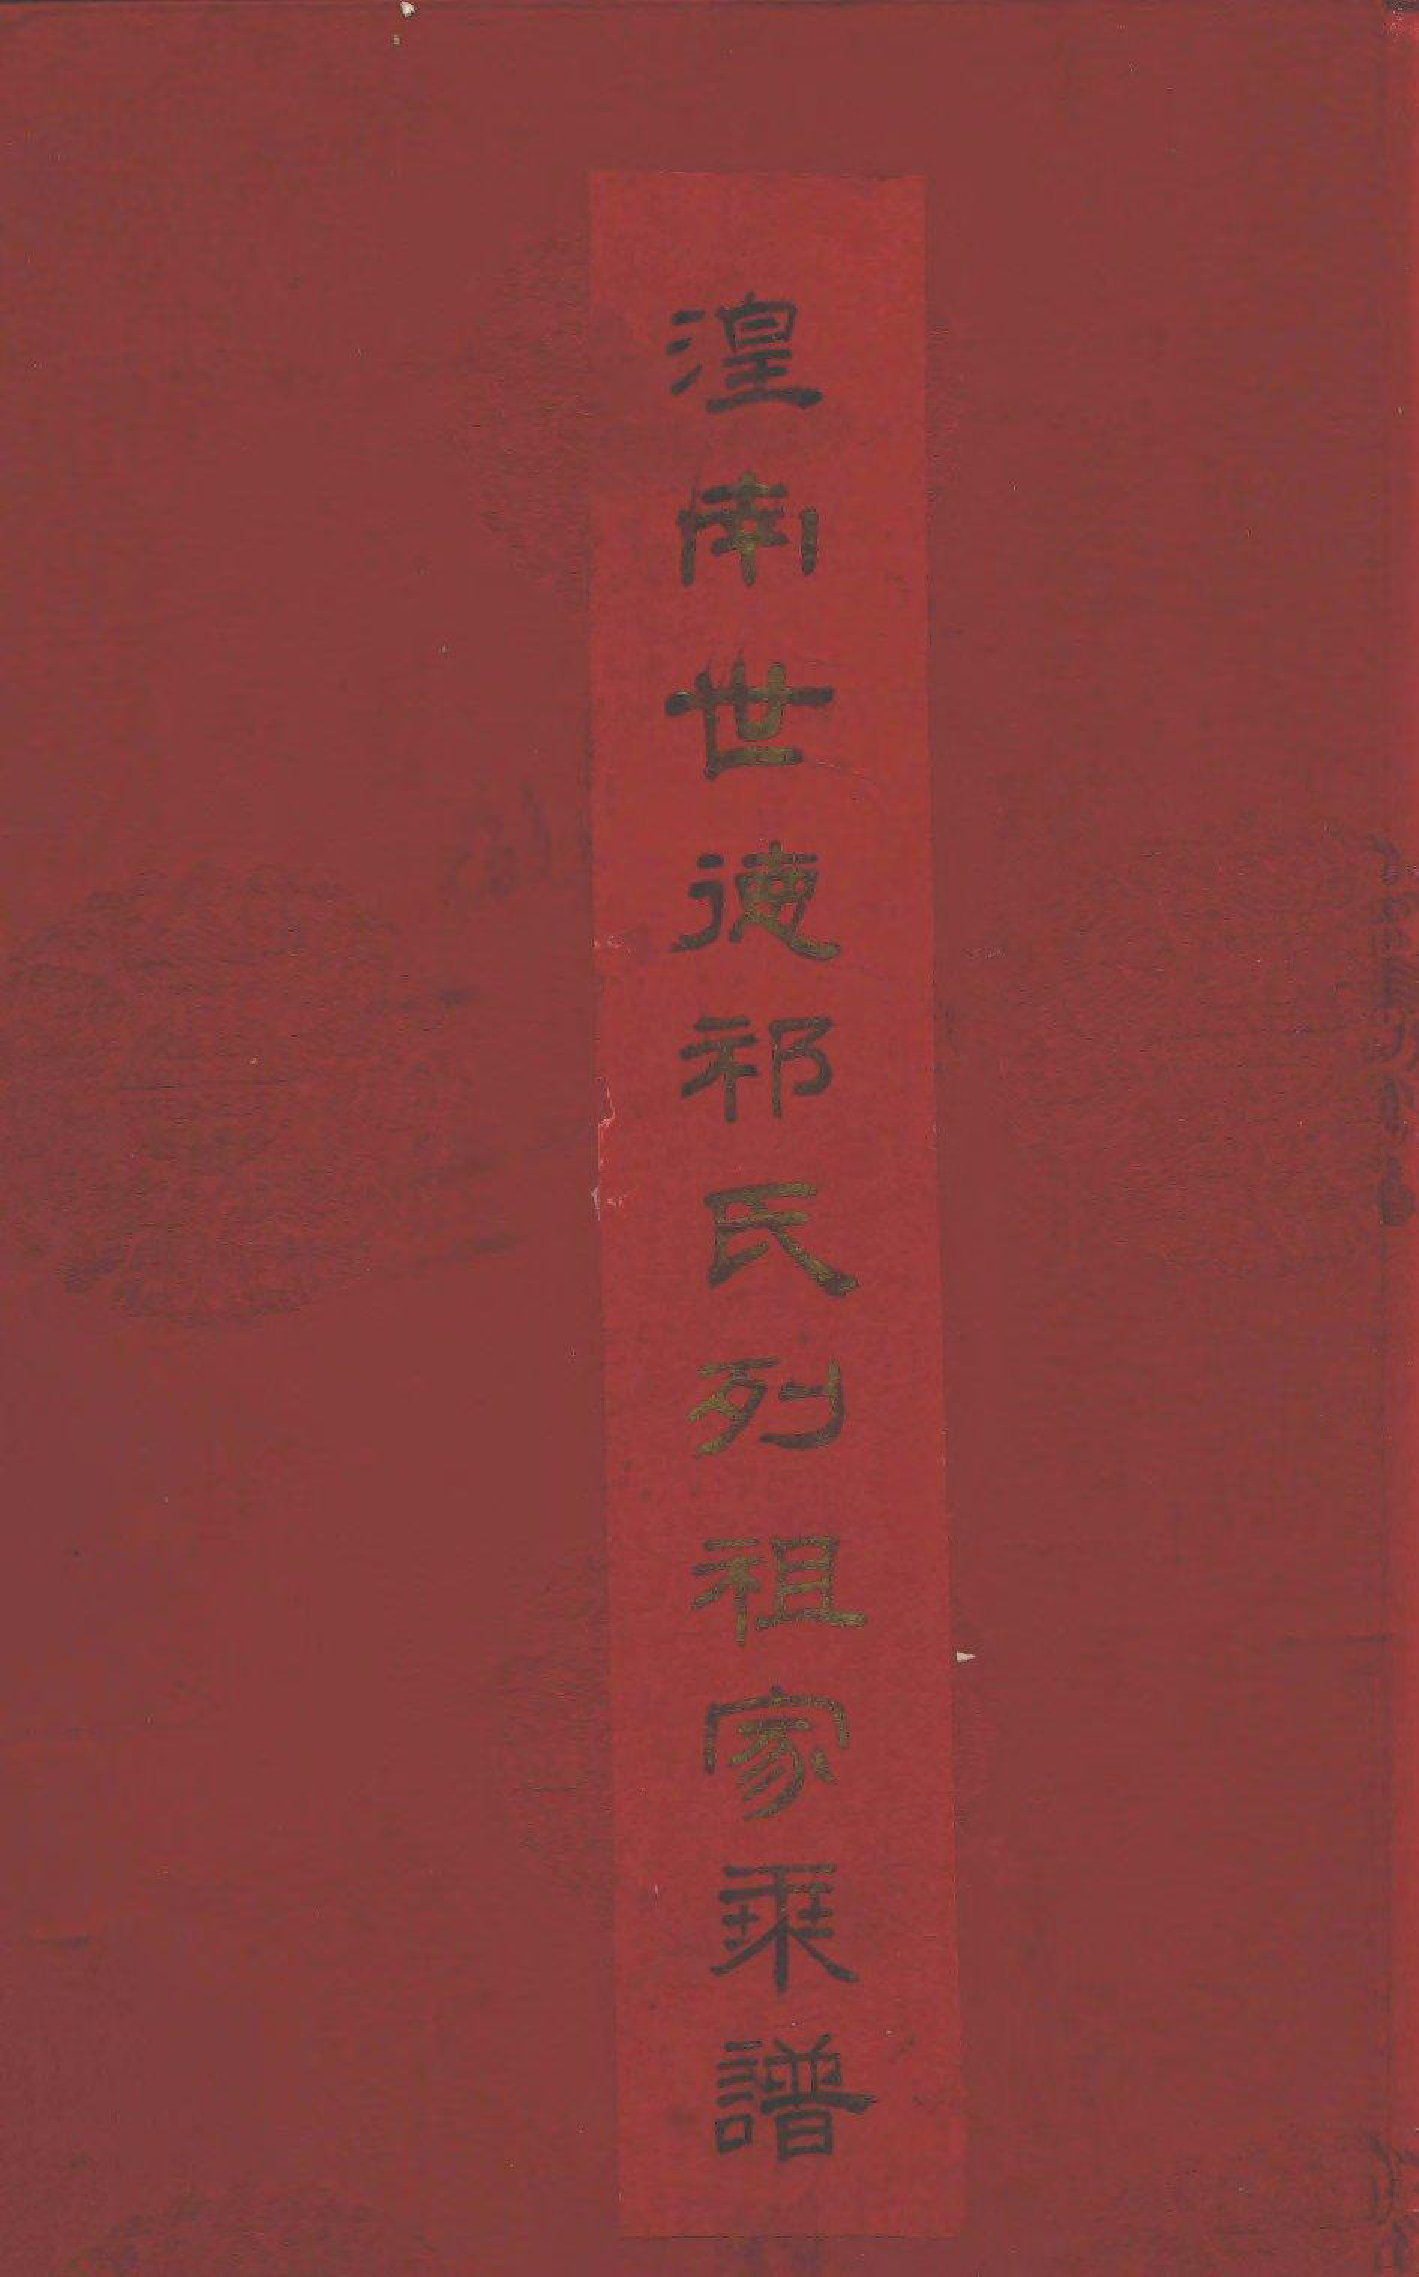 湟南世德祁氏列祖家乘譜